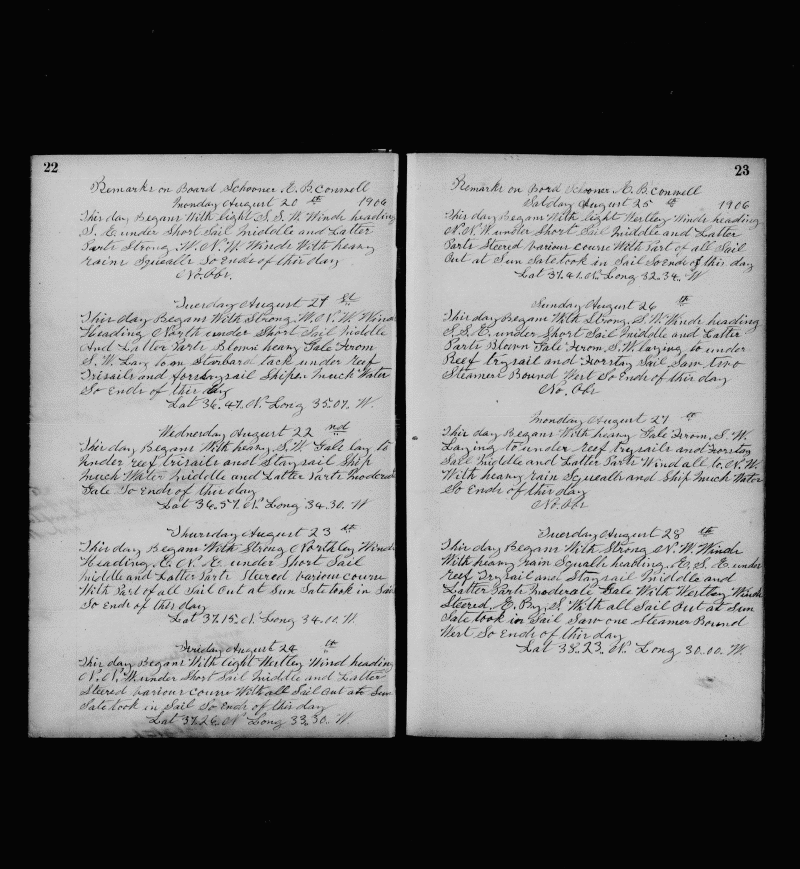 22
Remarks on Board Schooner A. B. Conwell
Monday August 20 th 1906
This day Begans With light S. S. W. Winds heading
S. E. under Short Sail Middle and Latter
Parts Strong W. N. W. Winds With heavy
rain Squealls So Ends of this day
No. Obs.
Tuesday August 21 st
This day Begans With Strong W. N. W. Winds
Heading North under Short Sail Middle
And Latter Parts Blown heavy Gale From
S. W. Lay to on Storbard tack under reef
Trisails and forstaysail Shipen Much Water
So Ends of this day
Lat 36.47. N. Long 35.07. W.
Wednesday August 22 nd
This day Begans With heavy S.W. Gale lay to
Under reef trisails and Staysail Ship
Much Water Middle and Latter Parts Moderat
Gale So Ends of this day
Lat 36.57. N. Long 34.30. W
Thursday August 23 th
This day Begans With Strong Northley Winds
Heading E. N. E. under Short Sail
Middle and Latter Parts Steered various course
With Part of all Sail Out at Sun Sate took in Sail
So Ends of this day
Lat 37.15. N. Long 34.00. W.
Friday August 24 th
This day Begans With light Westley Wind heading
N. N. W under Short Sail Middle and Latter
Steered various course With all Sail Out ate Sun
Sate took in Sail So Ends of this day
Lat 37.26. N Long 33.30. W.
23
Remarks on Bord Schooner A. B. Conwell
Satday August 25 th 1906
This day Began With light Westley Winds heading
N. N. W under Short Sail Middle and Latter
Parts Steered various course With Part of all Sail
Out at Sun Sate took in Sail So Ends of this day
Lat 37.41. N. Long 32.34. W
Sunday August 26 th
This day Began With Strong S. W. Winds heading
S. S. E. under Short Sail Middle and Latter
Parts Blown Gale From S. W. laying to under
Reef trysail and Forstay Sail Saw two
Steamers Bound West So Ends of this day
No. Obs
Monday August 27 th
This day Begans With heavy Gale From S. W.
Laying to under reef trysails and Forstay
Sail Middle and Latter Parts Wind all to N. W.
With heavy rain Squealls and Ship Much Water
So Ends of this day
No. Obs
Tuesday August 28 th
This day Begans With Strong N. W. Winds
With heavy rain Squalls heading E. S. E. under
reef Trysail and Staysail Middle and
Latter Parts Moderate Gale With Westley Winds
Steered E. By. S. With all Sail Out at Sun
Sate took in Sail Saw one Steamer Bound
West So Ends of this day
Lat 38.23. N. Long 30.00. W.